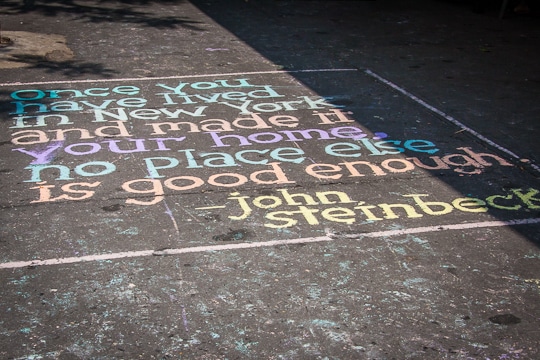 once you
have lived
in New York
and made it
your home,
no place else
is good enough.
–john
steinbeck